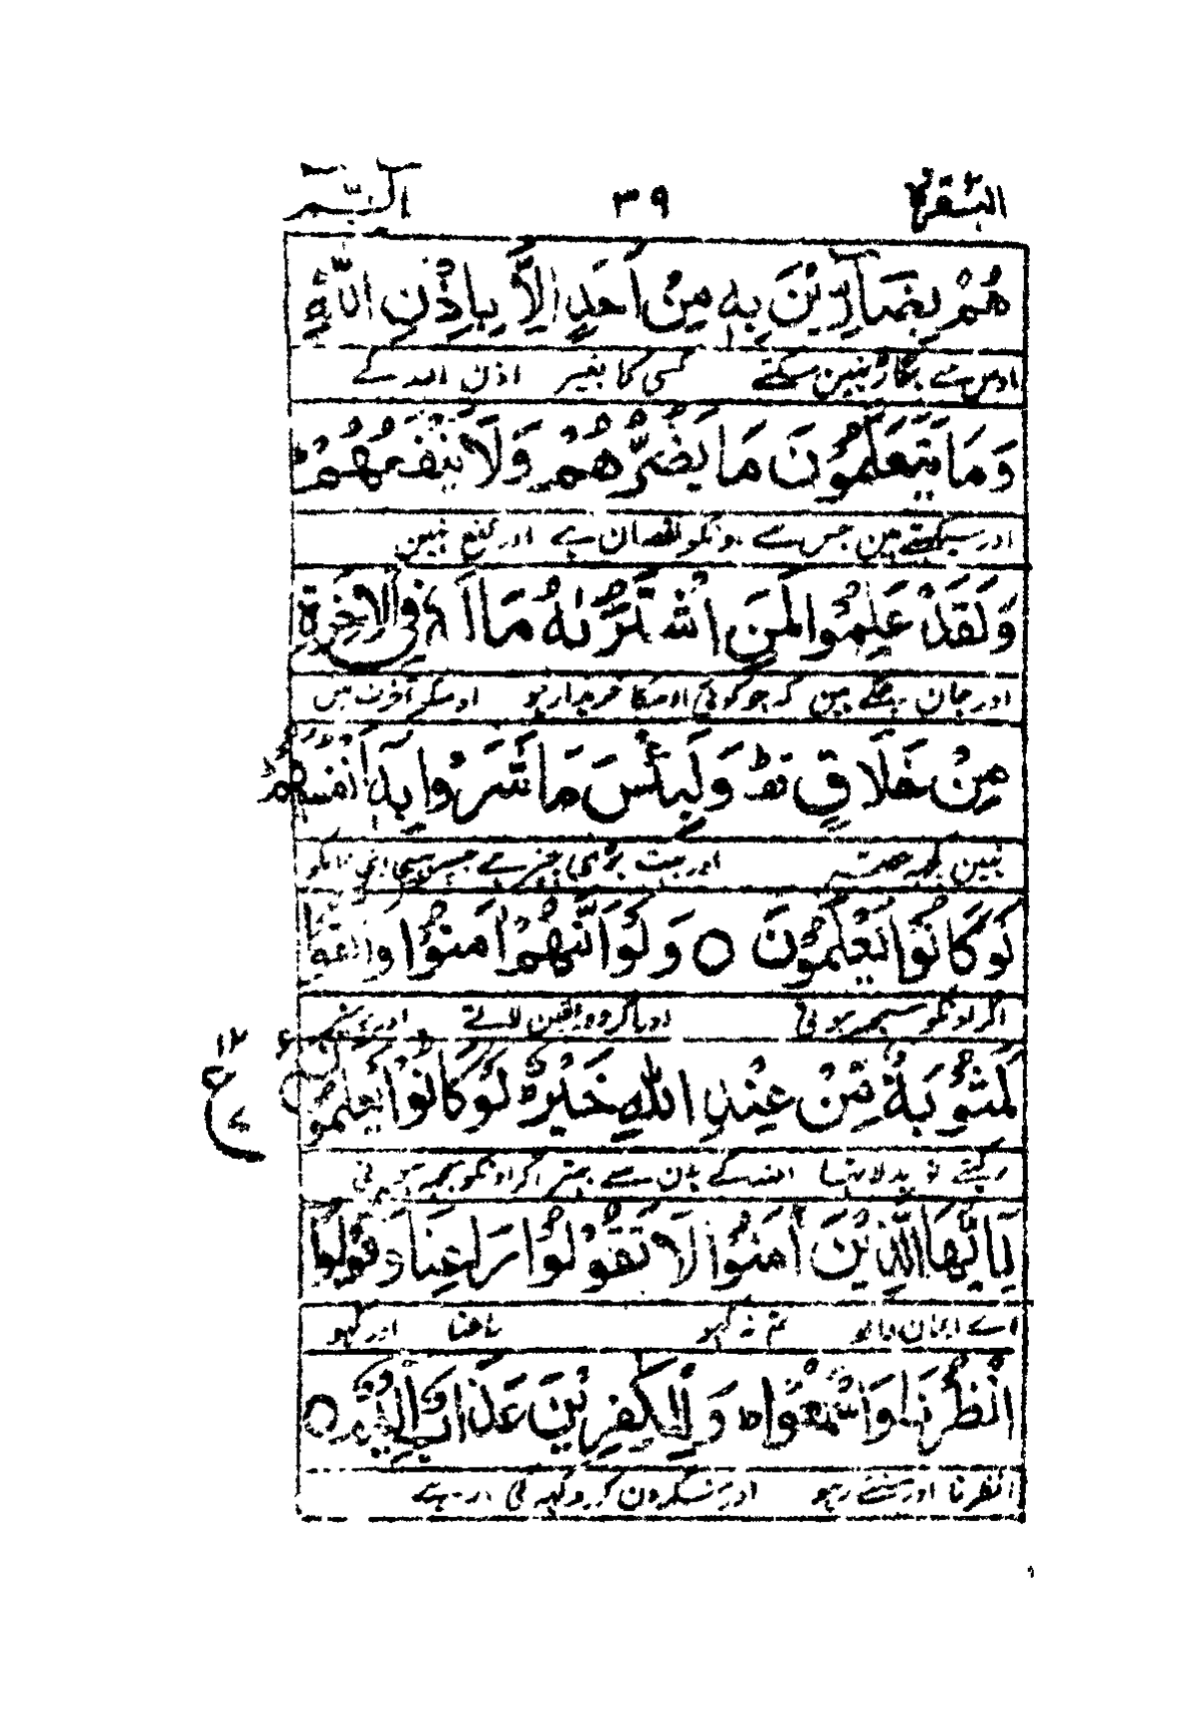 البقرة ٢ ٣٩ الٓمّٓ
هُمْ بِضَآرِّیْنَ بِهٖ مِنْ اَحَدٍ اِلَّا بِاِذْنِ اللّٰهِ
اوس سے بگاڑ نہین سکتے کسی کا بغیر اذن اللہ کے
وَمَا یَتَعَلَّمُوْنَ مَا یَضُرُّهُمْ وَلَا یَنْفَعُهُمْ ؕ
اور سیکھتے ہین جس سے اونکو نقصان ہے اور نفع نہین
وَلَقَدْ عَلِمُوْا لَمَنِ اشْتَرٰىهُ مَا لَهٗ فِی الْاٰخِرَةِ
اور جان چکے ہین کہ جو کوئی اوسکا خریدار ہو اوسکو آخرت مین
مِنْ خَلَاقٍ ؕ وَلَبِئْسَ مَا شَرَوْا بِهٖۤ اَنْفُسَهُمْ ؕ
نہین کچھ حصہ اور بہت بری چیز ہے جس پر بیچی اپنی جانکو
لَوْ كَانُوْا یَعْلَمُوْنَ ○ وَلَوْ اَنَّهُمْ اٰمَنُوْا وَاتَّقَوْا
اگر اونکو سمجھ ہوتی اور اگر وہ یقین لاتے اور پرہیز
لَمَثُوْبَةٌ مِّنْ عِنْدِ اللّٰهِ خَیْرٌ ؕ لَوْ كَانُوْا یَعْلَمُوْنَ
١٢ ع
رکھتے تو بدلا تہا اللہ کے ہان سے بہتر اگر اونکو سمجھ ہوتی
یٰۤاَیُّهَا الَّذِیْنَ اٰمَنُوْا لَا تَقُوْلُوْا رَاعِنَا وَقُوْلُوا
اے ایمان والو تم نہ کہو راعنا اور کہو
انْظُرْنَا وَاسْمَعُوْا ؕ وَلِلْكٰفِرِیْنَ عَذَابٌ اَلِیْمٌ ○
انظرنا اور سنتے رہو اور منکرون کو دکھ کی مار ہے